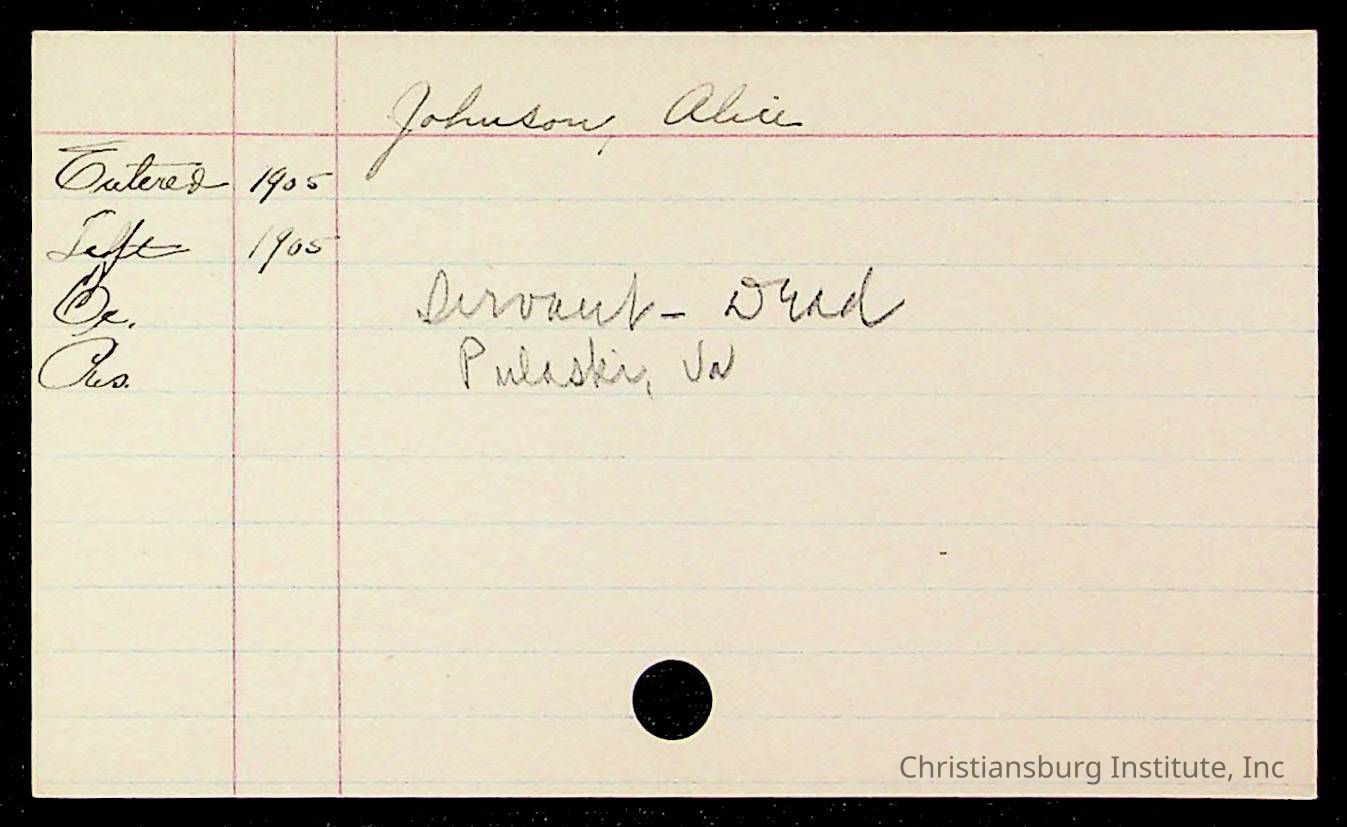 Johnson, Alice
Entered 1905
Left 1905
Oc. Servant - Dead
Res. Pulaski, Va
Christiansburg Institute, Inc